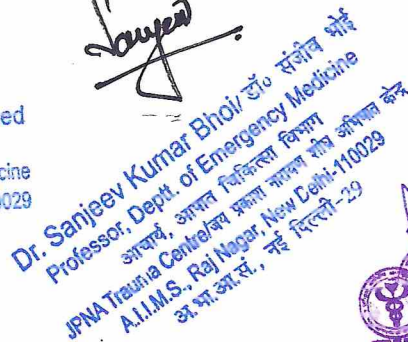 ed
cine
029
Dr. Sanjeev Kumar Bhoi/ डॉ० संजीव भोई
Professor, Deptt. of Emergency Medicine
आचार्य, आपात चिकित्सा विभाग
JPNA Trauma Centre/जय प्रकाश नारायण शीर्ष अभिघात केन्द्र
A.I.I.M.S., Raj Nagar, New Delhi-110029
अ.भा.आ.सं., नई दिल्ली-29